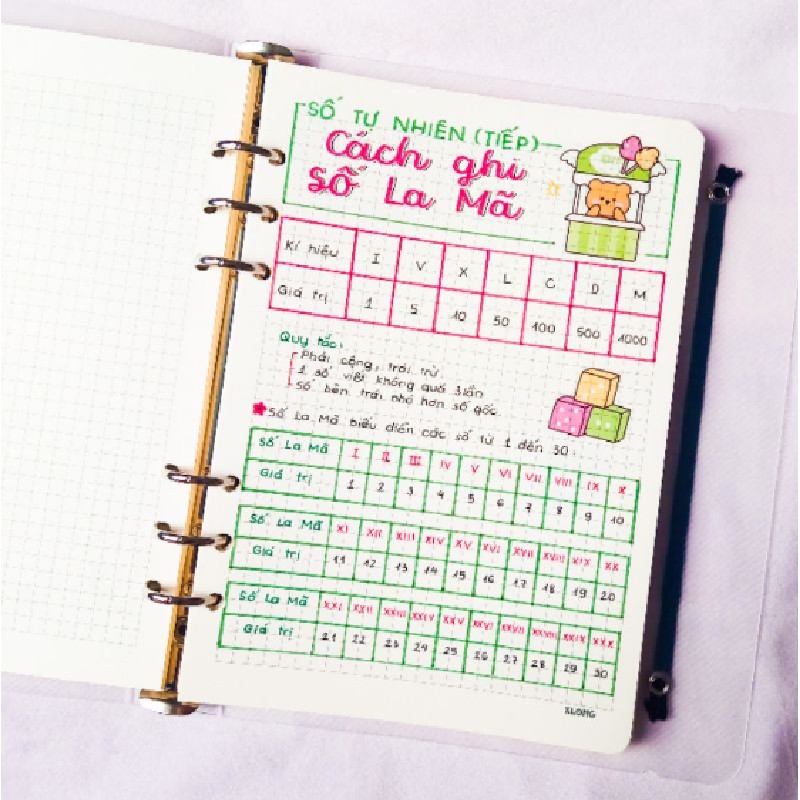 SỐ TỰ NHIÊN (TIẾP)
Cách ghi
số La Mã
Kí hiệu I V X L C D M
Giá trị 1 5 10 50 100 500 1000
Quy tắc:
Phải cộng, trái trừ
1 số viết không quá 3 lần
Số bên trái nhỏ hơn số gốc
Số La Mã biểu diễn các số từ 1 đến 30:
Số La Mã I II III IV V VI VII VIII IX X
Giá trị 1 2 3 4 5 6 7 8 9 10
Số La Mã XI XII XIII XIV XV XVI XVII XVIII XIX XX
Giá trị 11 12 13 14 15 16 17 18 19 20
Số La Mã XXI XXII XXIII XXIV XXV XXVI XXVII XXVIII XXIX XXX
Giá trị 21 22 23 24 25 26 27 28 29 30